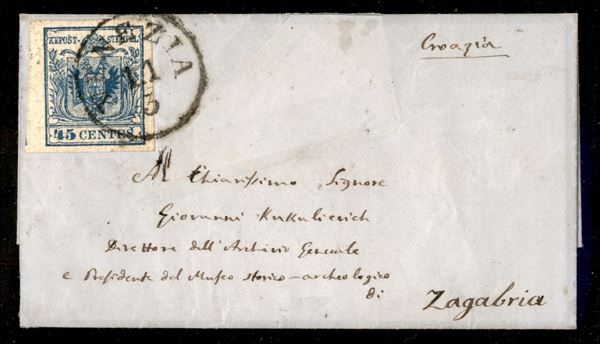 KKPOST-STEMPEL
45 CENTES.
VENEZIA
11
3
Croazia
Al Chiarissimo Signore
Giovanni Kukulievich
Direttore dell'Archivio Generale
e Presidente del Museo storico-archeologico
di
Zagabria